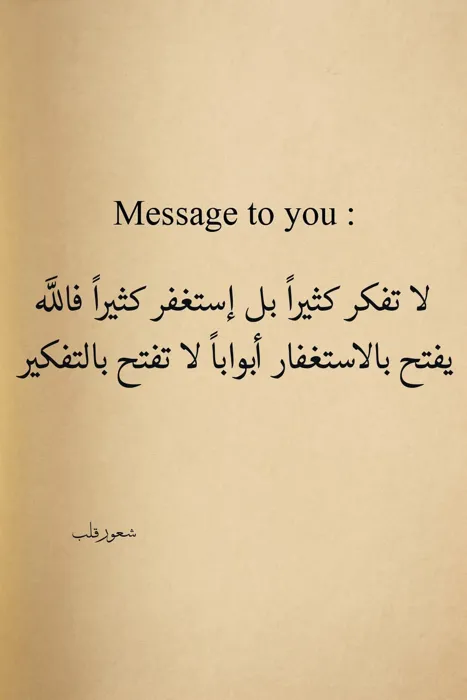 Message to you :
لا تفكر كثيراً بل إستغفر كثيراً فاللَّه
يفتح بالاستغفار أبواباً لا تفتح بالتفكير
شعور قلب